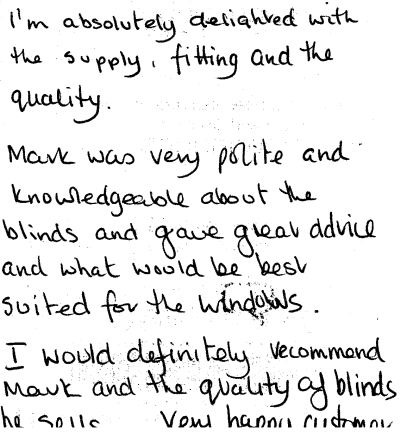 I'm absolutely delighted with
the supply, fitting and the
quality.
Mark was very polite and
knowledgeable about the
blinds and gave great advice
and what would be best
suited for the windows.
I would definitely recommend
Mark and the quality of blinds
he sells. Very happy customer